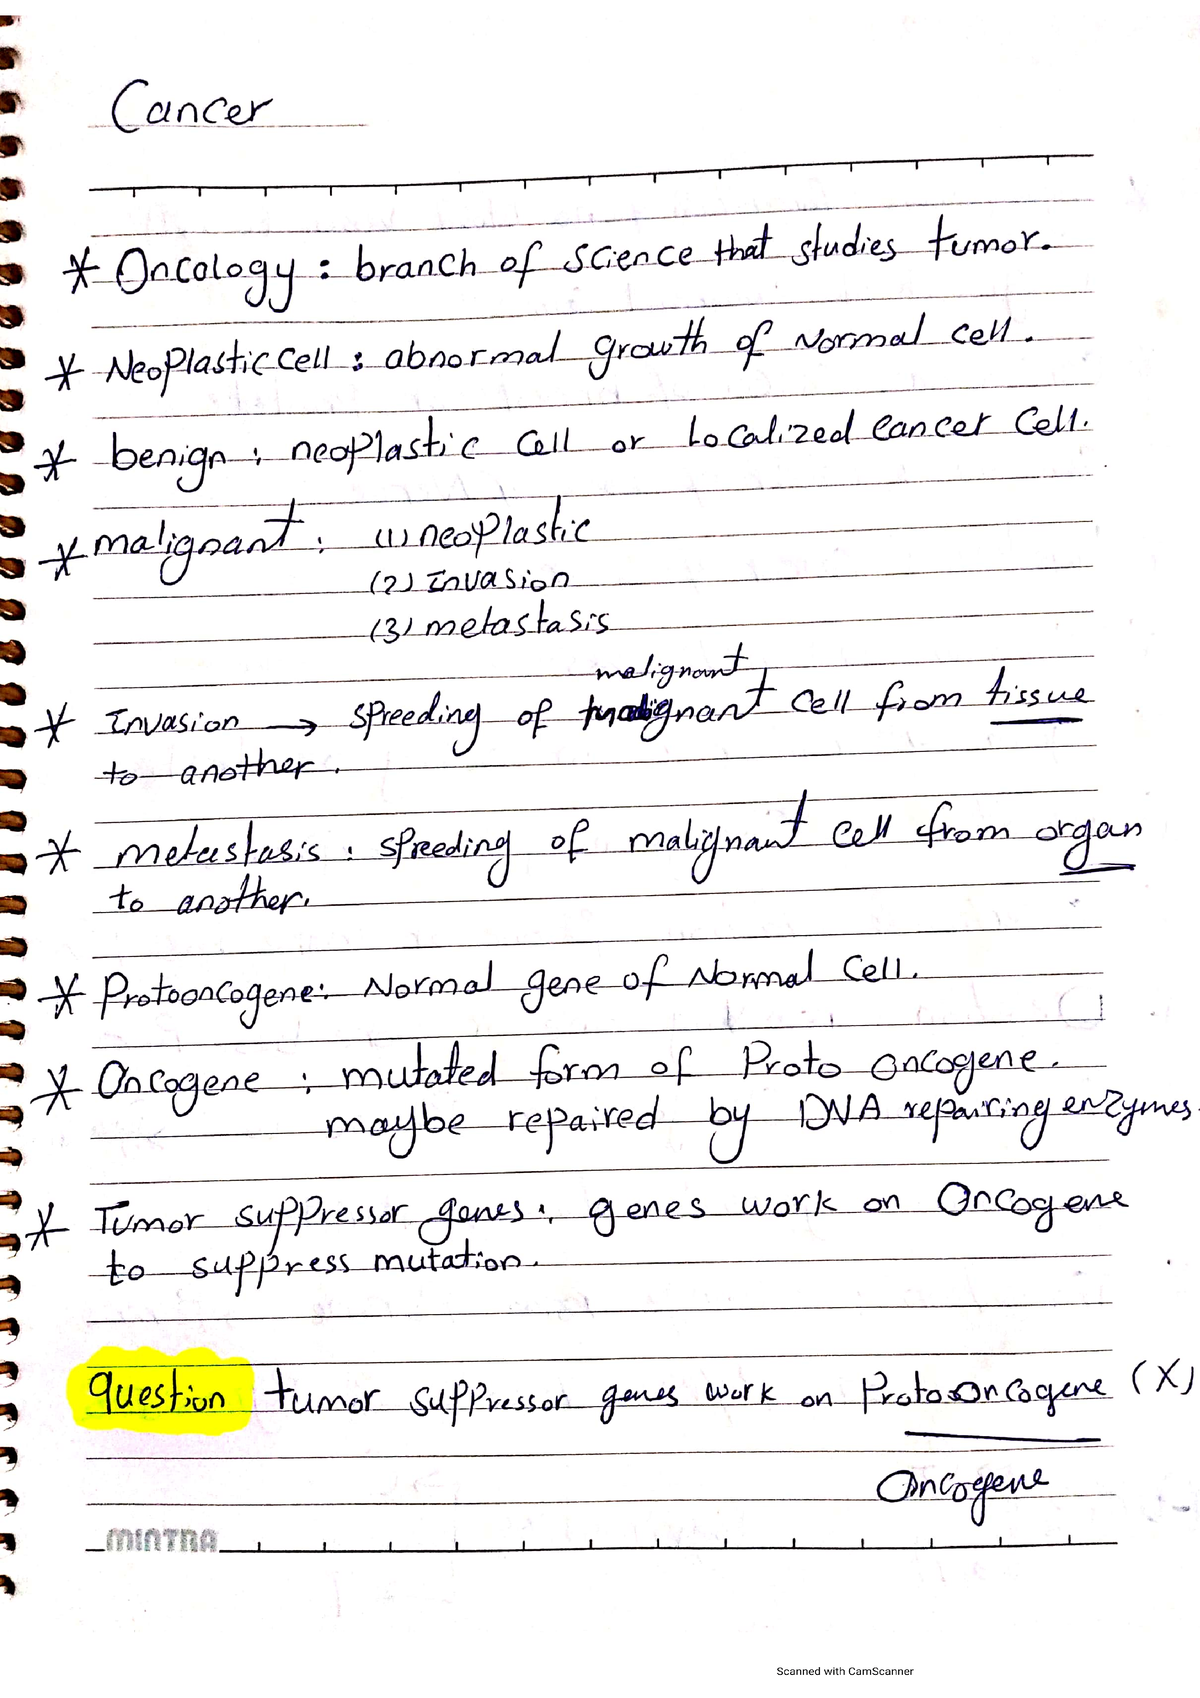 Cancer
* Oncology : branch of science that studies tumor.
* Neoplastic cell : abnormal growth of Normal cell.
* benign : neoplastic cell or Localized cancer cell.
* malignant : (1) neoplastic
(2) Invasion
(3) metastasis
malignant
* Invasion → spreeding of malignant cell from tissue
to another.
* metastasis : spreeding of malignant cell from organ
to another.
* Protooncogene: Normal gene of Normal Cell.
* Oncogene : mutated form of Proto oncogene.
maybe repaired by DNA repairing enzymes.
* Tumor suppressor genes : genes work on Oncogene
to suppress mutation.
question tumor suppressor genes work on Protooncogene (X)
Oncogene
MINTRA
Scanned with CamScanner